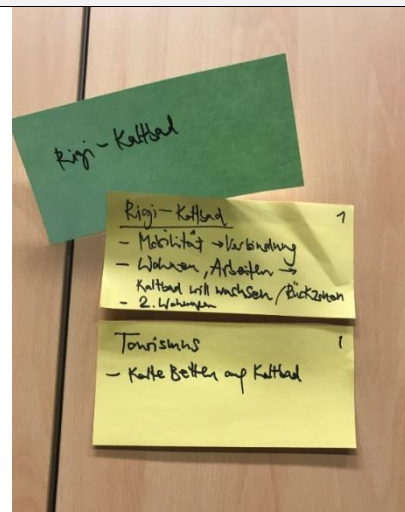 Rigi-Kaltbad
Rigi-Kaltbad 1
- Mobilität → Verbindung
- Wohnen, Arbeiten →
Kaltbad will wachsen / Rückzonen
- 2. Wohnungen
Tourismus 1
- Kalte Betten auf Kaltbad